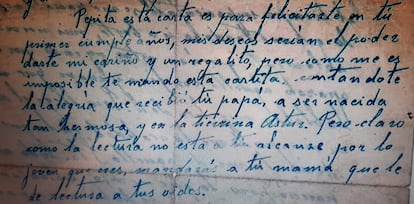 Pepita esta carta es para felicitarte en tu
primer cumple años, mis deseos serian el poder
darte mi cariño y un regalito, pero como me es
imposible te mando esta cartita, contandote
la alegria que recibió tu papá, a ser nacida
tan hermosa, y en la tierrina Astur. Pero claro
como la lectura no está a tu alcanze por lo
joven que eres, mandarás a tu mamá que le
de lectura a tus oidos.